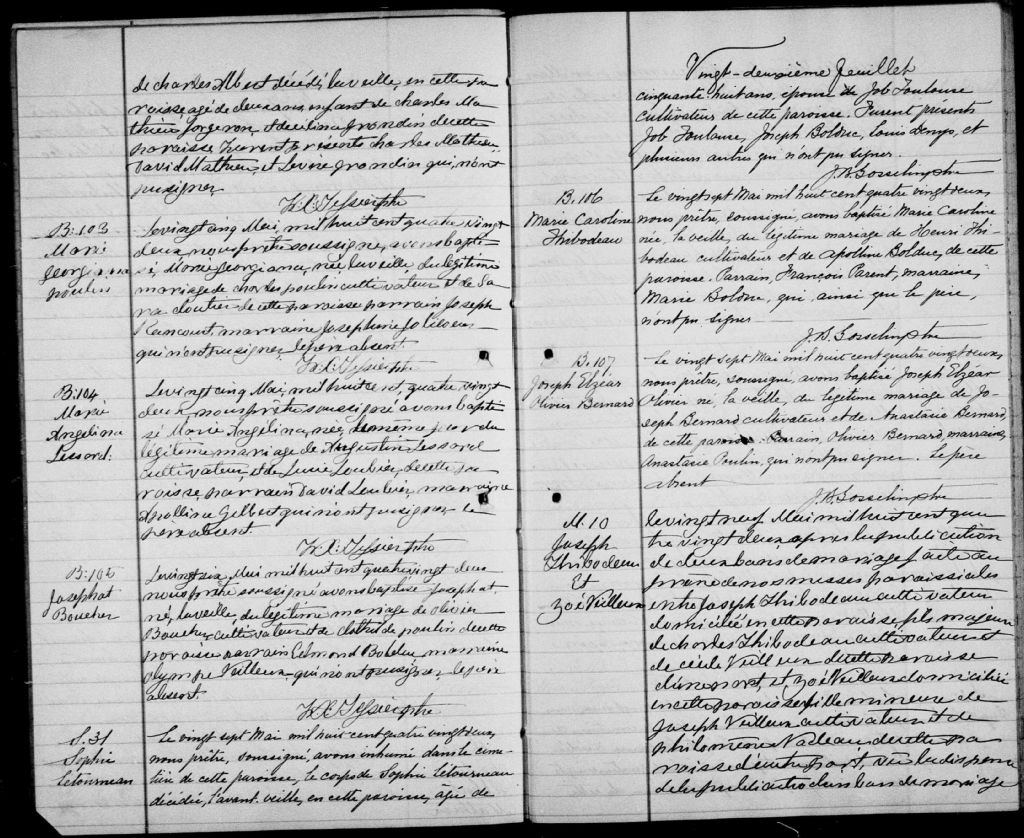 de charles Albert décédé, la veille, en cette pa
roisse, agé de deux ans, enfant de charles Ma
thieu forgeron, et de célina grondin de cette
paroisse furent presents charles Mathieu,
David Mathieu et Levine grondin qui, n'ont
pu signer
B: 103
Marie
Georgianna
poulin
Le vingt cinq Mai, mil huit cent quatre vingt
deux nous prêtre soussigné, avons bapti
sé, Marie Georgiana, née, la veille, du légitime
mariage de charles poulin cultivateur et de Sa
ra cloutier de cette paroisse parrain Joseph
Rancourt, marraine Josephine
qui n'ont pu signer, le père absent.
B: 104
Marie
Angelina
Lessard.
Le vingt cinq Mai, mil huit cent, quatre vingt
deux, nous prêtre soussigné avons bapti
sé Marie Angélina, née, le même jour du
légitime mariage de Augustin Lessard
cultivateur, et de Lucie Loubier, de cette pa
roisse, parrain David Loubier, marraine
Apolline Gilbert qui n'ont pu signer le
père absent.
B: 105
Josaphat
Boucher
Le vingt six, Mai mil huit cent quatre vingt deux
nous prêtre soussigné avons baptisé Josaphat,
né, la veille, du légitime mariage de olivier
Boucher cultivateur et de clothilde poulin de cette
paroisse parrain Edmond Bolduc, marraine
olympe Veilleux, qui n'ont pu signer, le père
absent.
S. 31
Sophie
Létourneau
Le vingt sept Mai mil huit cent quatre vingt deux,
nous prêtre, soussigné, avons inhumé dans le cime
tière de cette paroisse, le corps de Sophie Létourneau
décédée, l'avant veille, en cette paroisse, âgée de
Vingt-deuxième feuillet
cinquante huit ans, épouse de Job Toulouse
cultivateur de cette paroisse. Furent présents
Job Toulouse, Joseph Bolduc, Louis et
plusieurs autres qui n'ont pu signer.
J. B. Gosselin ptre
B. 106
Marie Caroline
Thibodeau
Le vingt sept Mai mil huit cent quatre vingt deux,
nous prêtre, soussigné, avons baptisé Marie Caroline
née, la veille, du légitime mariage de Henri Thi
bodeau cultivateur et de Apoline Bolduc, de cette
paroisse. Parrain, François Parent, marraine,
Marie Bolduc, qui, ainsi que le père,
n'ont pu signer
J. B. Gosselin ptre
B. 107
Joseph Elzéar
Olivier Bernard
Le vingt sept Mai mil huit cent quatre vingt deux,
nous prêtre, soussigné, avons baptisé Joseph Elzéar
Olivier né, la veille, du légitime mariage de Jo
seph Bernard cultivateur et de Anastasie Bernard,
de cette paroisse. Parrain, Olivier Bernard, marraine,
Anastasie Poulin, qui n'ont pu signer. Le père
absent
J. B. Gosselin ptre
M. 10
Joseph
Thibodeau
Et
Zoé Veilleux
Le vingt neuf Mai mil huit cent qua
tre vingt deux, après la publication
de deux bans de mariage faite au
prone de nos messes paroissiales
entre Joseph Thibodeau cultivateur
domicilié en cette paroisse, fils majeur
de charles Thibodeau cultivateur et
de cécile Veilleux de cette paroisse
d'une part, et Zoé Veilleux domiciliée
en cette paroisse fille mineure de
Joseph Veilleux cultivateur et de
philomène Nadeau de cette pa
roisse d'autre part, vu la dispense
de la publication d'un ban de mariage